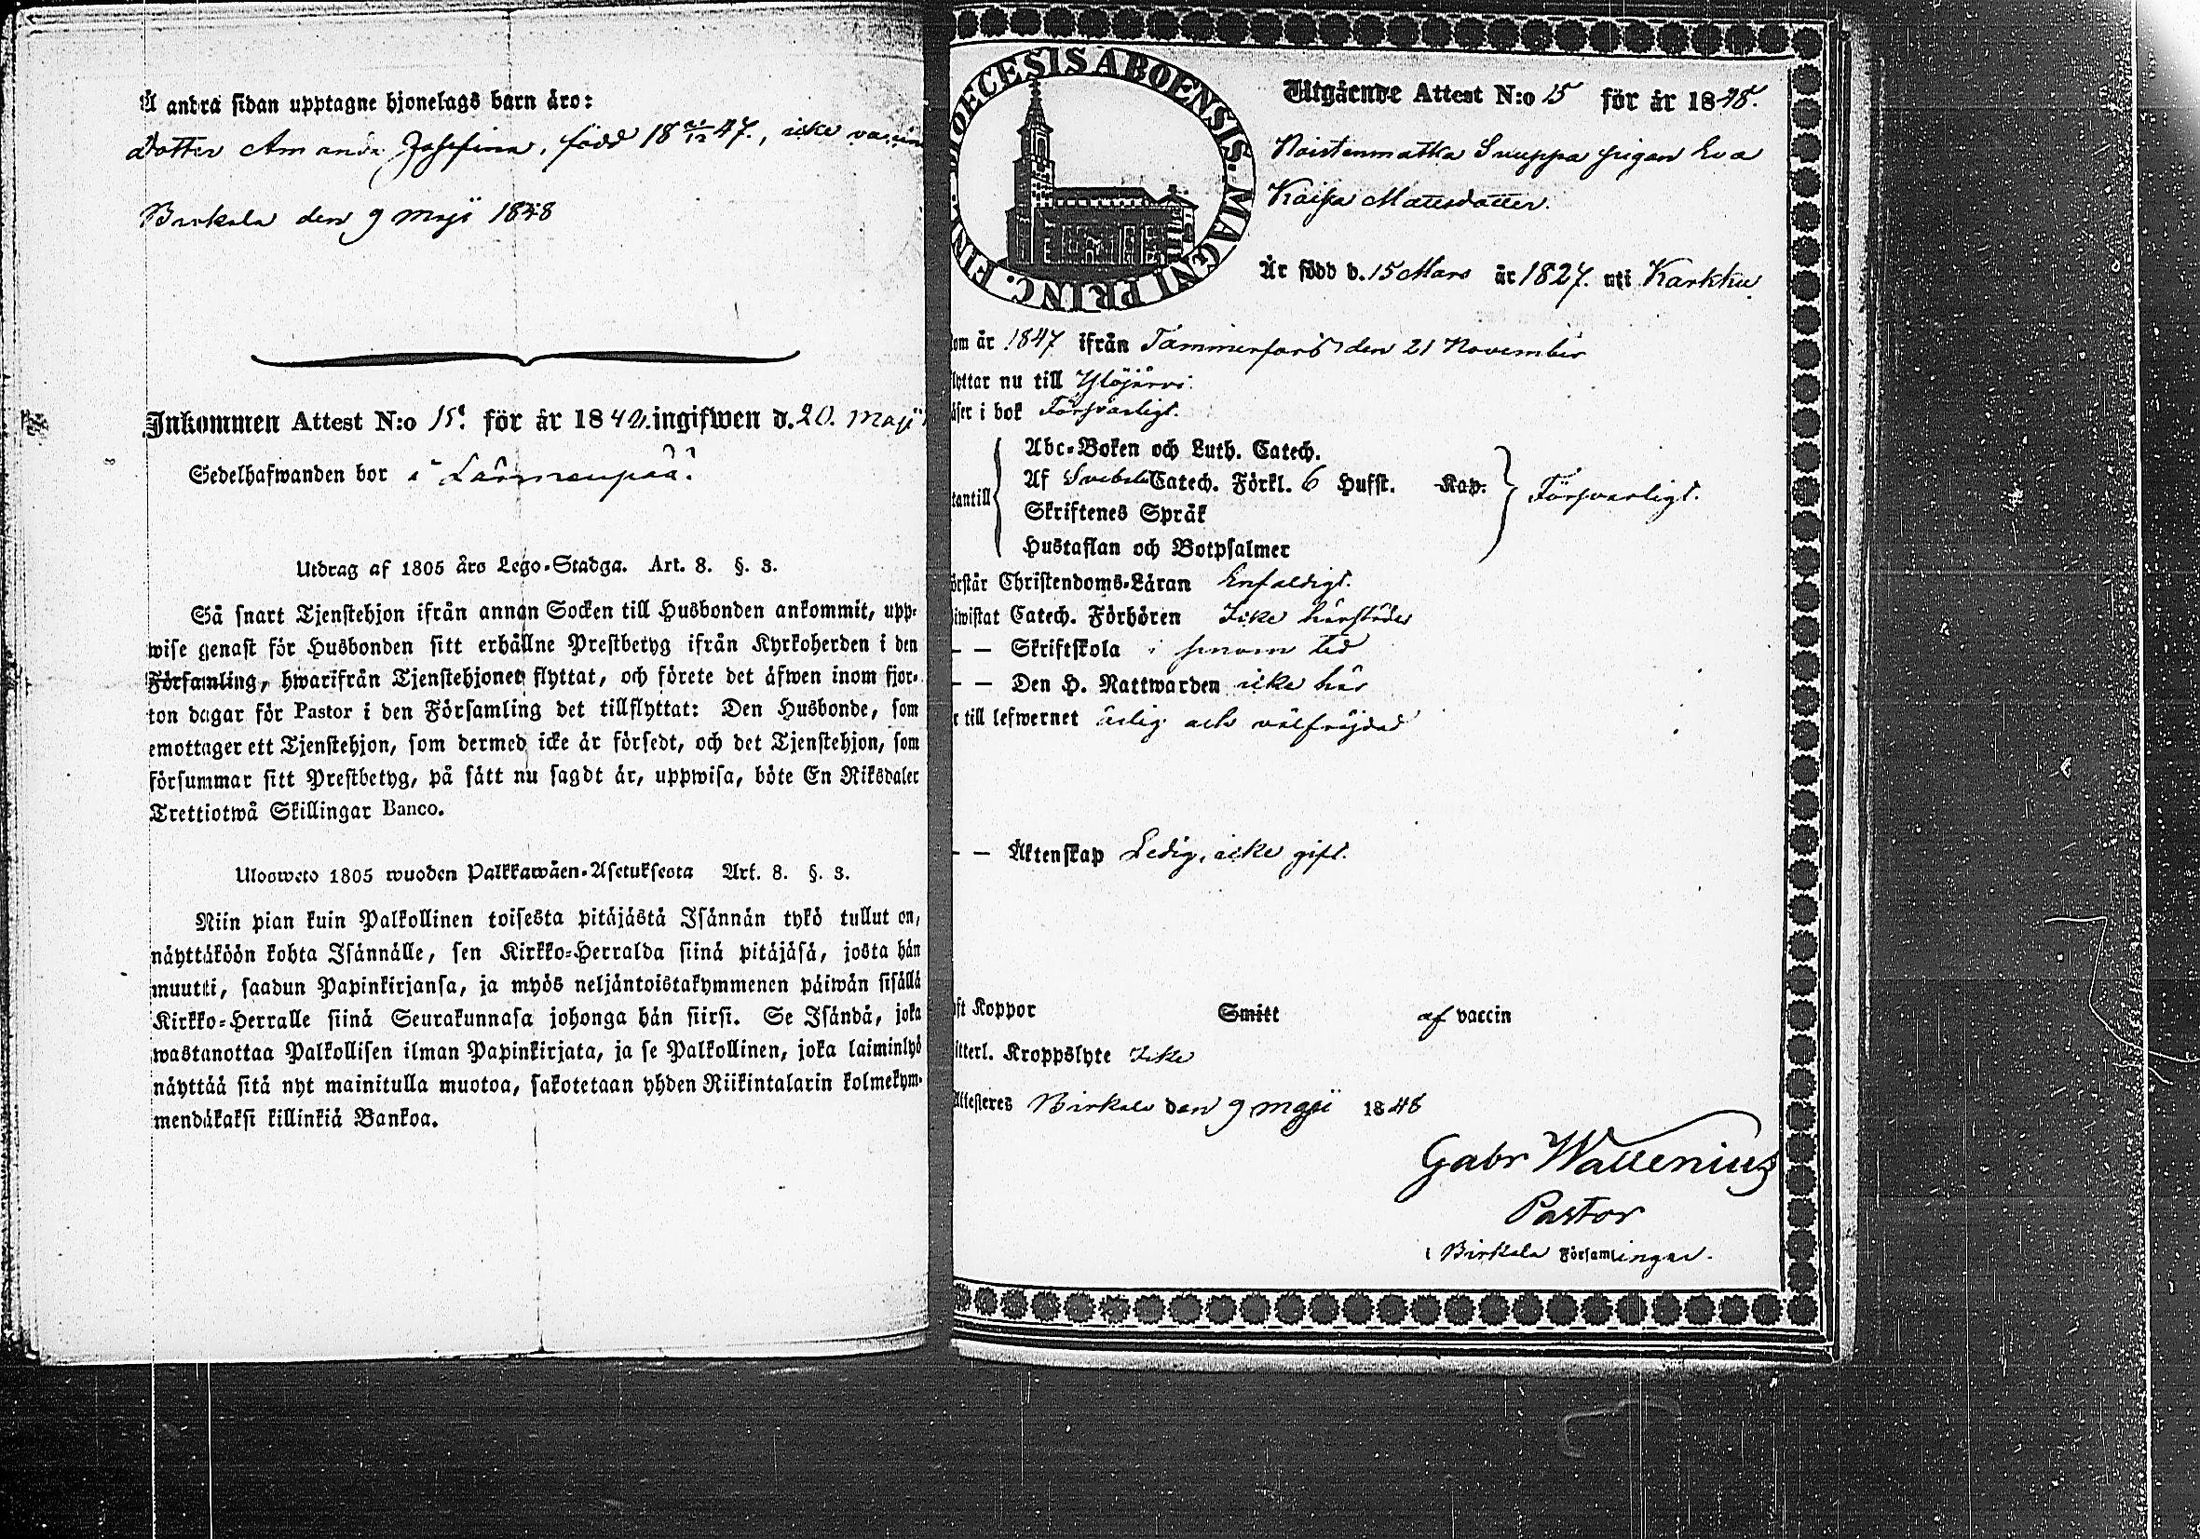 Å andra sidan upptagne hjonelags barn äro:
Dotter Amanda Josefina, född 18 21/12 47., icke vaccin
Birkala den 9 maji 1848
Inkommen Attest N:o 15. för år 1848. ingifwen d. 20. Maji
Sedelhafwanden bor i
Utdrag af 1805 års Lego-Stadga. Art. 8. §. 3.
Så snart Tjenstehjon ifrån annan Socken till Husbonden ankommit, upp-
wise genast för Husbonden sitt erhållne Prestbetyg ifrån Kyrkoherden i den
Församling, hwarifrån Tjenstehjonet flyttat, och förete det äfwen inom fjor-
ton dagar för Pastor i den Församling det tillflyttat: Den Husbonde, som
emottager ett Tjenstehjon, som dermed icke är försedt, och det Tjenstehjon, som
försummar sitt Prestbetyg, på sätt nu sagdt är, uppwisa, böte En Riksdaler
Trettiotwå Skillingar Banco.
Ulosweto 1805 wuoden Palkkawäen-Asetuksesta Art. 8. §. 3.
Niin pian kuin Palkollinen toisesta pitäjästä Isännän tykö tullut on,
näyttäköön kohta Isännälle, sen Kirkko-Herralda siinä pitäjäsä, josta hän
muutti, saadun Papinkirjansa, ja myös neljäntoistakymmenen päiwän sisällä
Kirkko-Herralle siinä Seurakunnasa johonga hän siirsi. Se Isändä, joka
wastanottaa Palkollisen ilman Papinkirjata, ja se Palkollinen, joka laiminlyö
näyttää sitä nyt mainitulla muotoa, sakotetaan yhden Riikintalarin kolmekym-
mendäkaksi killinkiä Bankoa.
DIOECESIS ABOENSIS. MAGNI PRINC. FINL.
Utgående Attest N:o 15 för år 1848.
Noistenmatka Snuppa pigan Eva
Kaisa Mattsdotter.
Är född d. 15 Mars år 1827. uti Karkku
om år 1847 ifrån Tammerfors den 21 November
lyttar nu till Ylöjärvi.
äser i bok Försvarligt.
Abc-Boken och Luth. Catech.
Af Svebeli Catech. Förkl. 6 Hufst. Kap.
tantill Försvarligt.
Skriftenes Språk
Hustaflan och Botpsalmer
örstår Christendoms-Läran Enfaldigt.
iwistat Catech. Förhören Icke härstädes
– – Skriftskola i sinom tid
– – Den H. Nattwarden icke här
r till lefwernet ärlig och välfräjdad
– – Äktenskap Ledig, icke gift.
ft Koppor Smitt af vaccin
itterl. Kroppslyte Icke
Attesteres Birkala den 9 maji 1848
Gabr Wallenius
Pastor
i Birkala Församlingar.